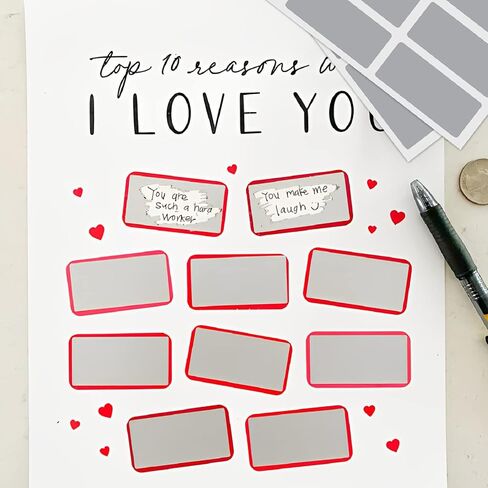 top 10 reasons
I LOVE YOU
You are
such a hard
worker
You make me
laugh